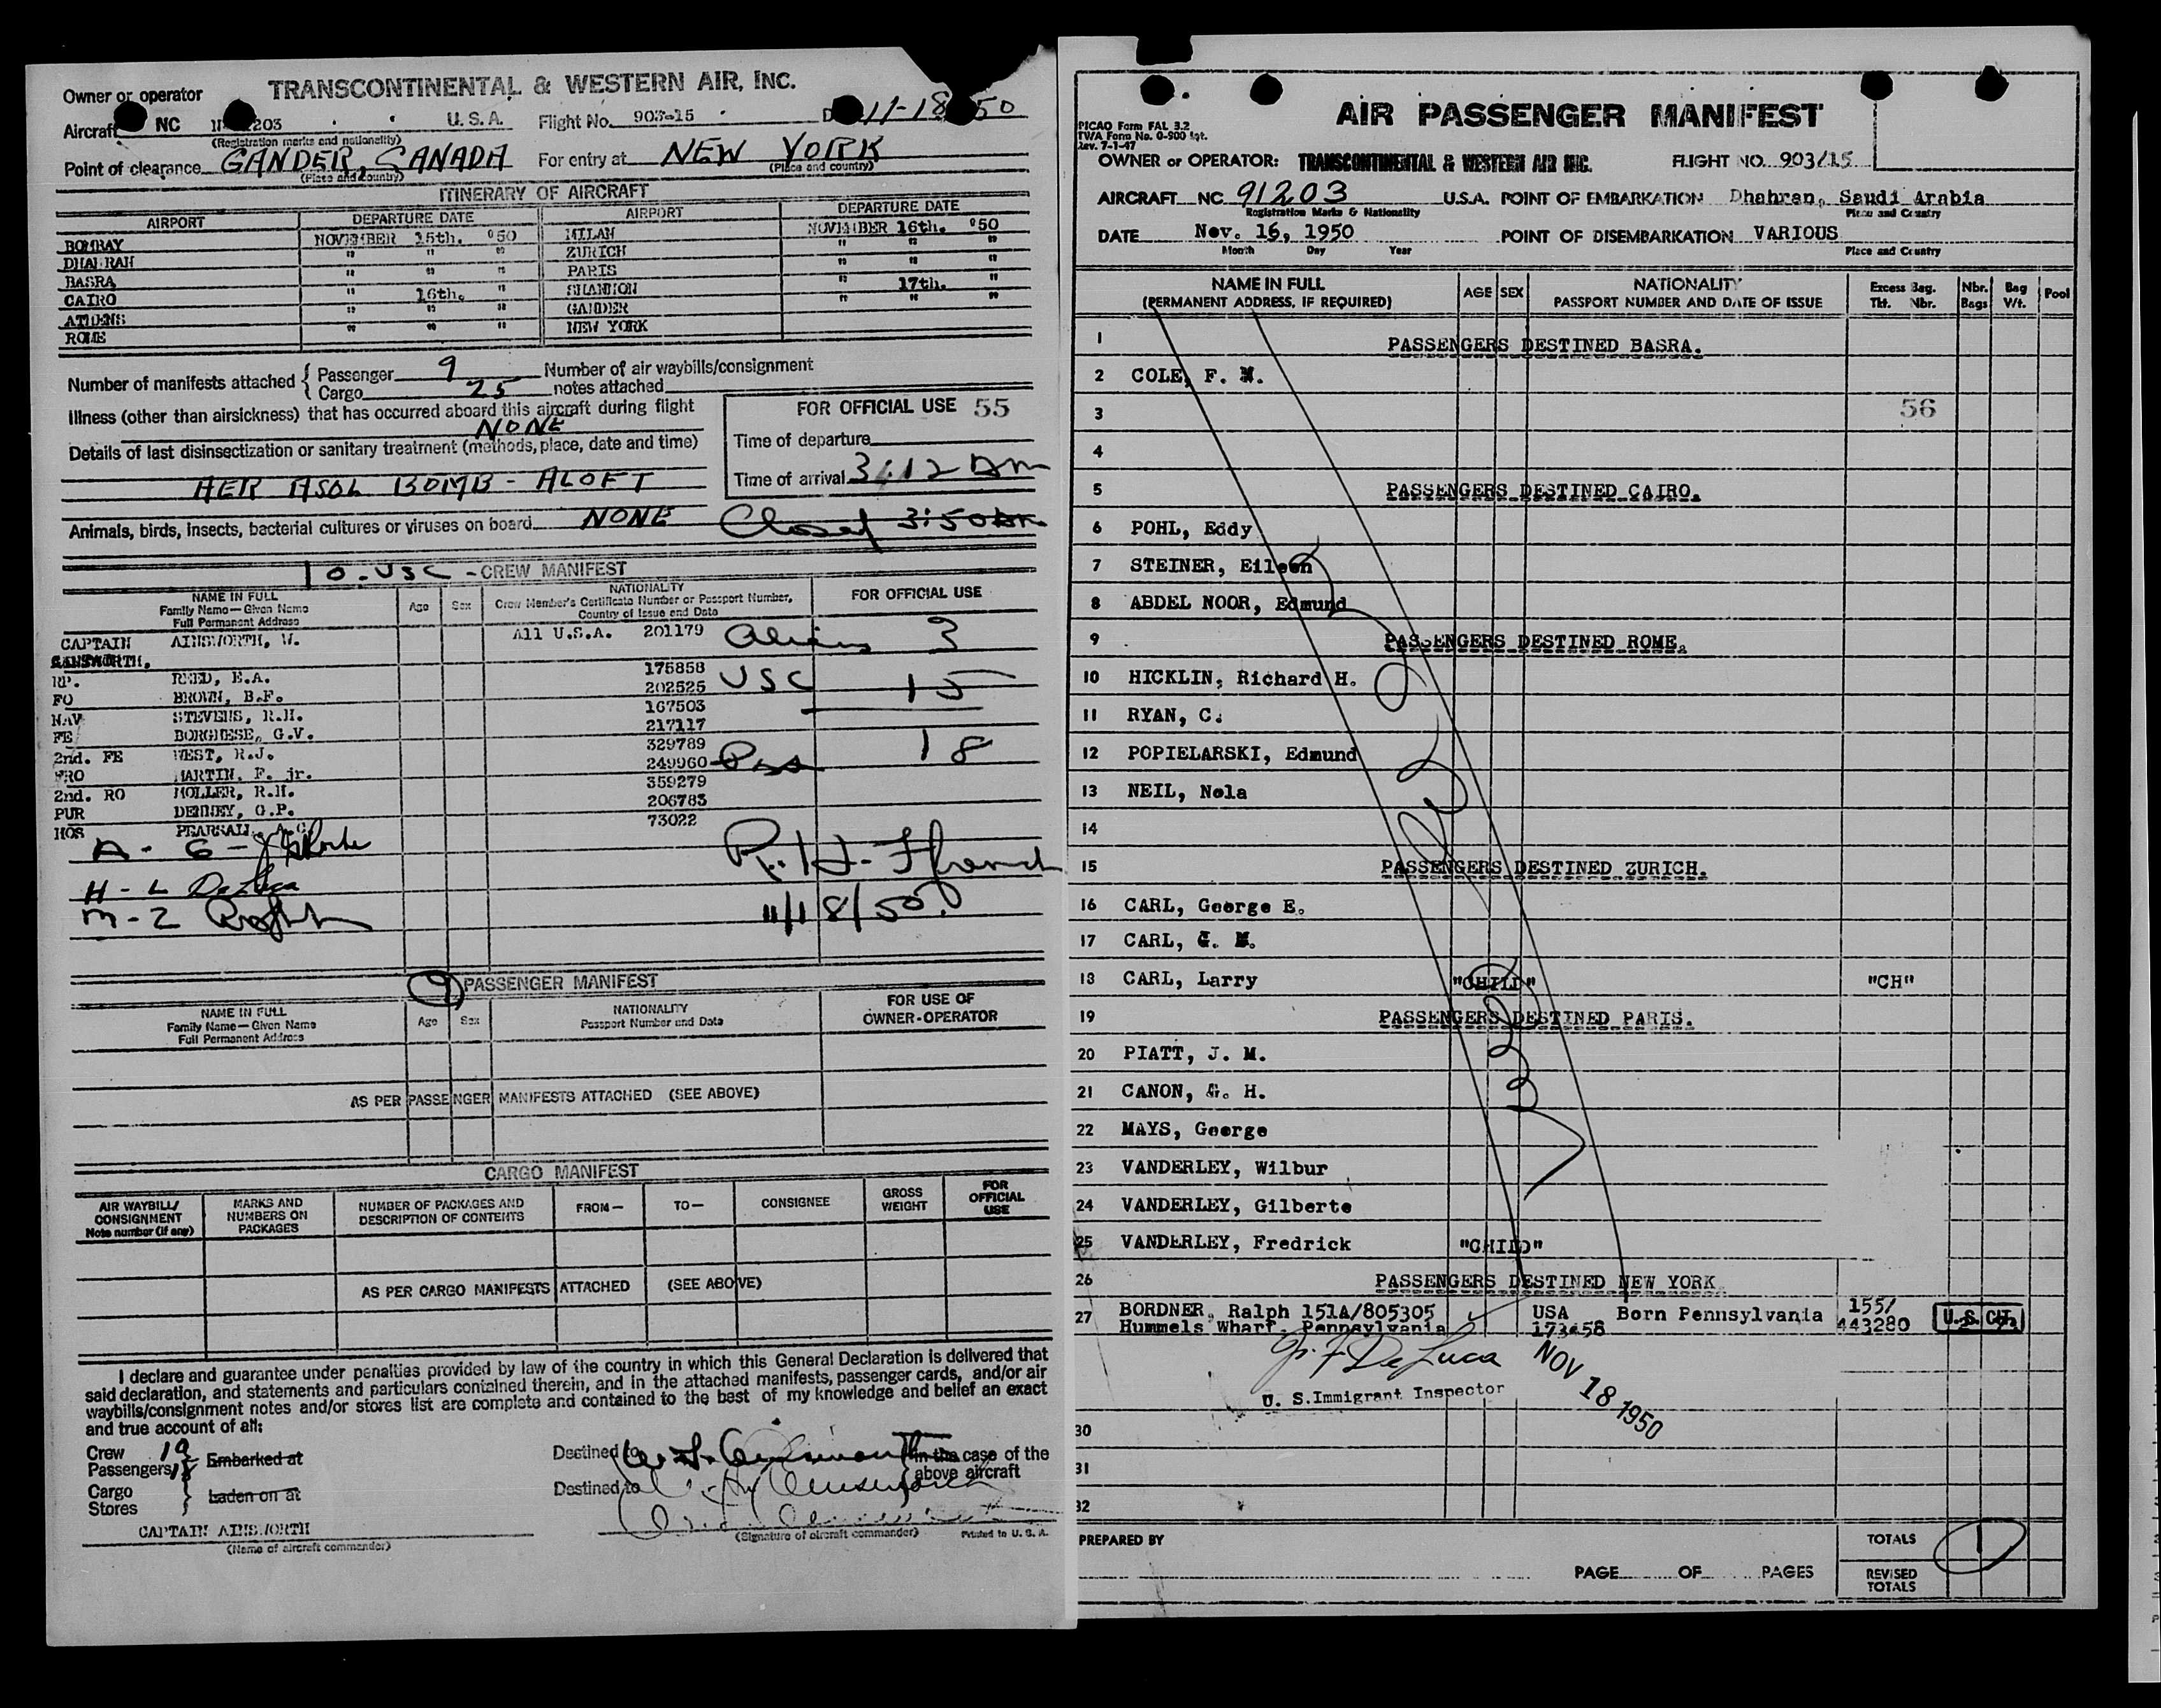 Owner or operator TRANSCONTINENTAL & WESTERN AIR, INC.
Aircraft NC 203 U.S.A. Flight No. 903-15 11-18 50
(Registration marks and nationality)
Point of clearance GANDER, CANADA For entry at NEW YORK
(Place and country) (Place and country)
ITINERARY OF AIRCRAFT
AIRPORT DEPARTURE DATE AIRPORT DEPARTURE DATE
BOMBAY NOVEMBER 15th. '50 MILAN NOVEMBER 16th. '50
DHAHRAN " " " ZURICH " " "
BASRA " " " PARIS " " "
CAIRO " 16th. " SHANNON " 17th. "
ATHENS " " " GANDER " " "
ROME " " " NEW YORK
Number of manifests attached { Passenger 9 Number of air waybills/consignment
{ Cargo 25 notes attached
Illness (other than airsickness) that has occurred aboard this aircraft during flight
NONE
FOR OFFICIAL USE 55
Time of departure
Time of arrival 3:12 am
Details of last disinsectization or sanitary treatment (methods, place, date and time)
AER ASOL BOMB - ALOFT
Animals, birds, insects, bacterial cultures or viruses on board NONE
Closed 3:50 am
10 - USC - CREW MANIFEST
NAME IN FULL
Family Name—Given Name
Full Permanent Address
Age Sex
NATIONALITY
Crew Member's Certificate Number or Passport Number,
Country of Issue and Date
FOR OFFICIAL USE
CAPTAIN AINSWORTH, W. All U.S.A. 201179
Aliens 3
RP. REED, E.A. 175858
FO BROWN, B.F. 202525
USC 15
NAV STEVENS, R.H. 167503
FE BORGHESE, G.V. 217117
2nd. FE WEST, R.J. 329789
FRO MARTIN, F. jr. 249960
Pss 18
2nd. RO MOLLER, R.H. 359279
PUR DENNEY, G.P. 206783
HOS PEARSALL, A.C. 73022
A - G -
H - L De Luca
M - Z
R. H.
11/18/50
9 PASSENGER MANIFEST
NAME IN FULL
Family Name—Given Name
Full Permanent Address
Age Sex
NATIONALITY
Passport Number and Date
FOR USE OF
OWNER-OPERATOR
AS PER PASSENGER MANIFESTS ATTACHED (SEE ABOVE)
CARGO MANIFEST
AIR WAYBILL/
CONSIGNMENT
Note number (if any)
MARKS AND
NUMBERS ON
PACKAGES
NUMBER OF PACKAGES AND
DESCRIPTION OF CONTENTS
FROM— TO— CONSIGNEE
GROSS
WEIGHT
FOR
OFFICIAL
USE
AS PER CARGO MANIFESTS ATTACHED (SEE ABOVE)
I declare and guarantee under penalties provided by law of the country in which this General Declaration is delivered that
said declaration, and statements and particulars contained therein, and in the attached manifests, passenger cards, and/or air
waybills/consignment notes and/or stores list are complete and contained to the best of my knowledge and belief an exact
and true account of all:
Crew
Passengers 18 Embarked at Destined to in the case of the
above aircraft
Cargo
Stores Laden on at Destined to
CAPTAIN AINSWORTH
(Name of aircraft commander)
(Signature of aircraft commander) Printed in U. S. A.
AIR PASSENGER MANIFEST
PICAO Form FAL 3.2
TWA Form No. O-500 Int.
Rev. 7-1-47
OWNER or OPERATOR: TRANSCONTINENTAL & WESTERN AIR INC. FLIGHT NO. 903/15
AIRCRAFT NC 91203 U.S.A. POINT OF EMBARKATION Dhahran, Saudi Arabia
Registration Marks & Nationality Place and Country
DATE Nov. 16, 1950 POINT OF DISEMBARKATION VARIOUS
Month Day Year Place and Country
NAME IN FULL
(PERMANENT ADDRESS, IF REQUIRED)
AGE SEX
NATIONALITY
PASSPORT NUMBER AND DATE OF ISSUE
Excess Bag.
Tkt. Nbr.
Nbr.
Bags
Bag
Wt.
Pool
1 PASSENGERS DESTINED BASRA.
2 COLE, F. M.
3 56
4
5 PASSENGERS DESTINED CAIRO.
6 POHL, Eddy
7 STEINER, Eileen
8 ABDEL NOOR, Edmund
9 PASSENGERS DESTINED ROME.
10 HICKLIN, Richard H.
11 RYAN, C.
12 POPIELARSKI, Edmund
13 NEIL, Nola
14
15 PASSENGERS DESTINED ZURICH.
16 CARL, George E.
17 CARL, G. M.
18 CARL, Larry "CHILD" "CH"
19 PASSENGERS DESTINED PARIS.
20 PIATT, J. M.
21 CANON, G. H.
22 MAYS, George
23 VANDERLEY, Wilbur
24 VANDERLEY, Gilberte
25 VANDERLEY, Fredrick "CHILD"
26 PASSENGERS DESTINED NEW YORK
27 BORDNER, Ralph 151A/805305 USA Born Pennsylvania 155/
Hummels Wharf, Pennsylvania 173458 443280 U.S. CIT.
De Luca
U. S. Immigrant Inspector
NOV 18 1950
30
31
32
PREPARED BY TOTALS 1
PAGE OF PAGES REVISED
TOTALS